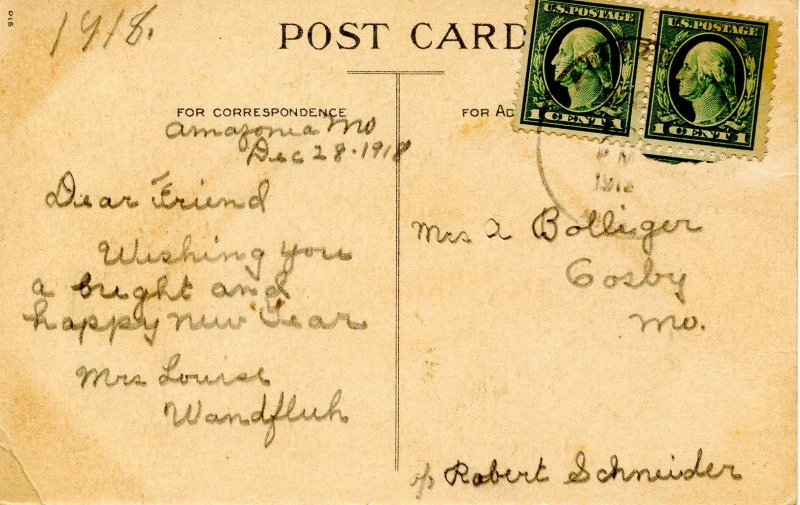 1918.
POST CARD
U.S. POSTAGE
1 CENT 1
U.S. POSTAGE
1 CENT 1
FOR CORRESPONDENCE
Amazonia Mo
Dec 28-1918
Dear Friend
Wishing you
a bright and
happy New Year
Mrs Louise
Wandfluh
FOR AD
PM
Mrs A Bolliger
Cosby
Mo.
c/o Robert Schneider